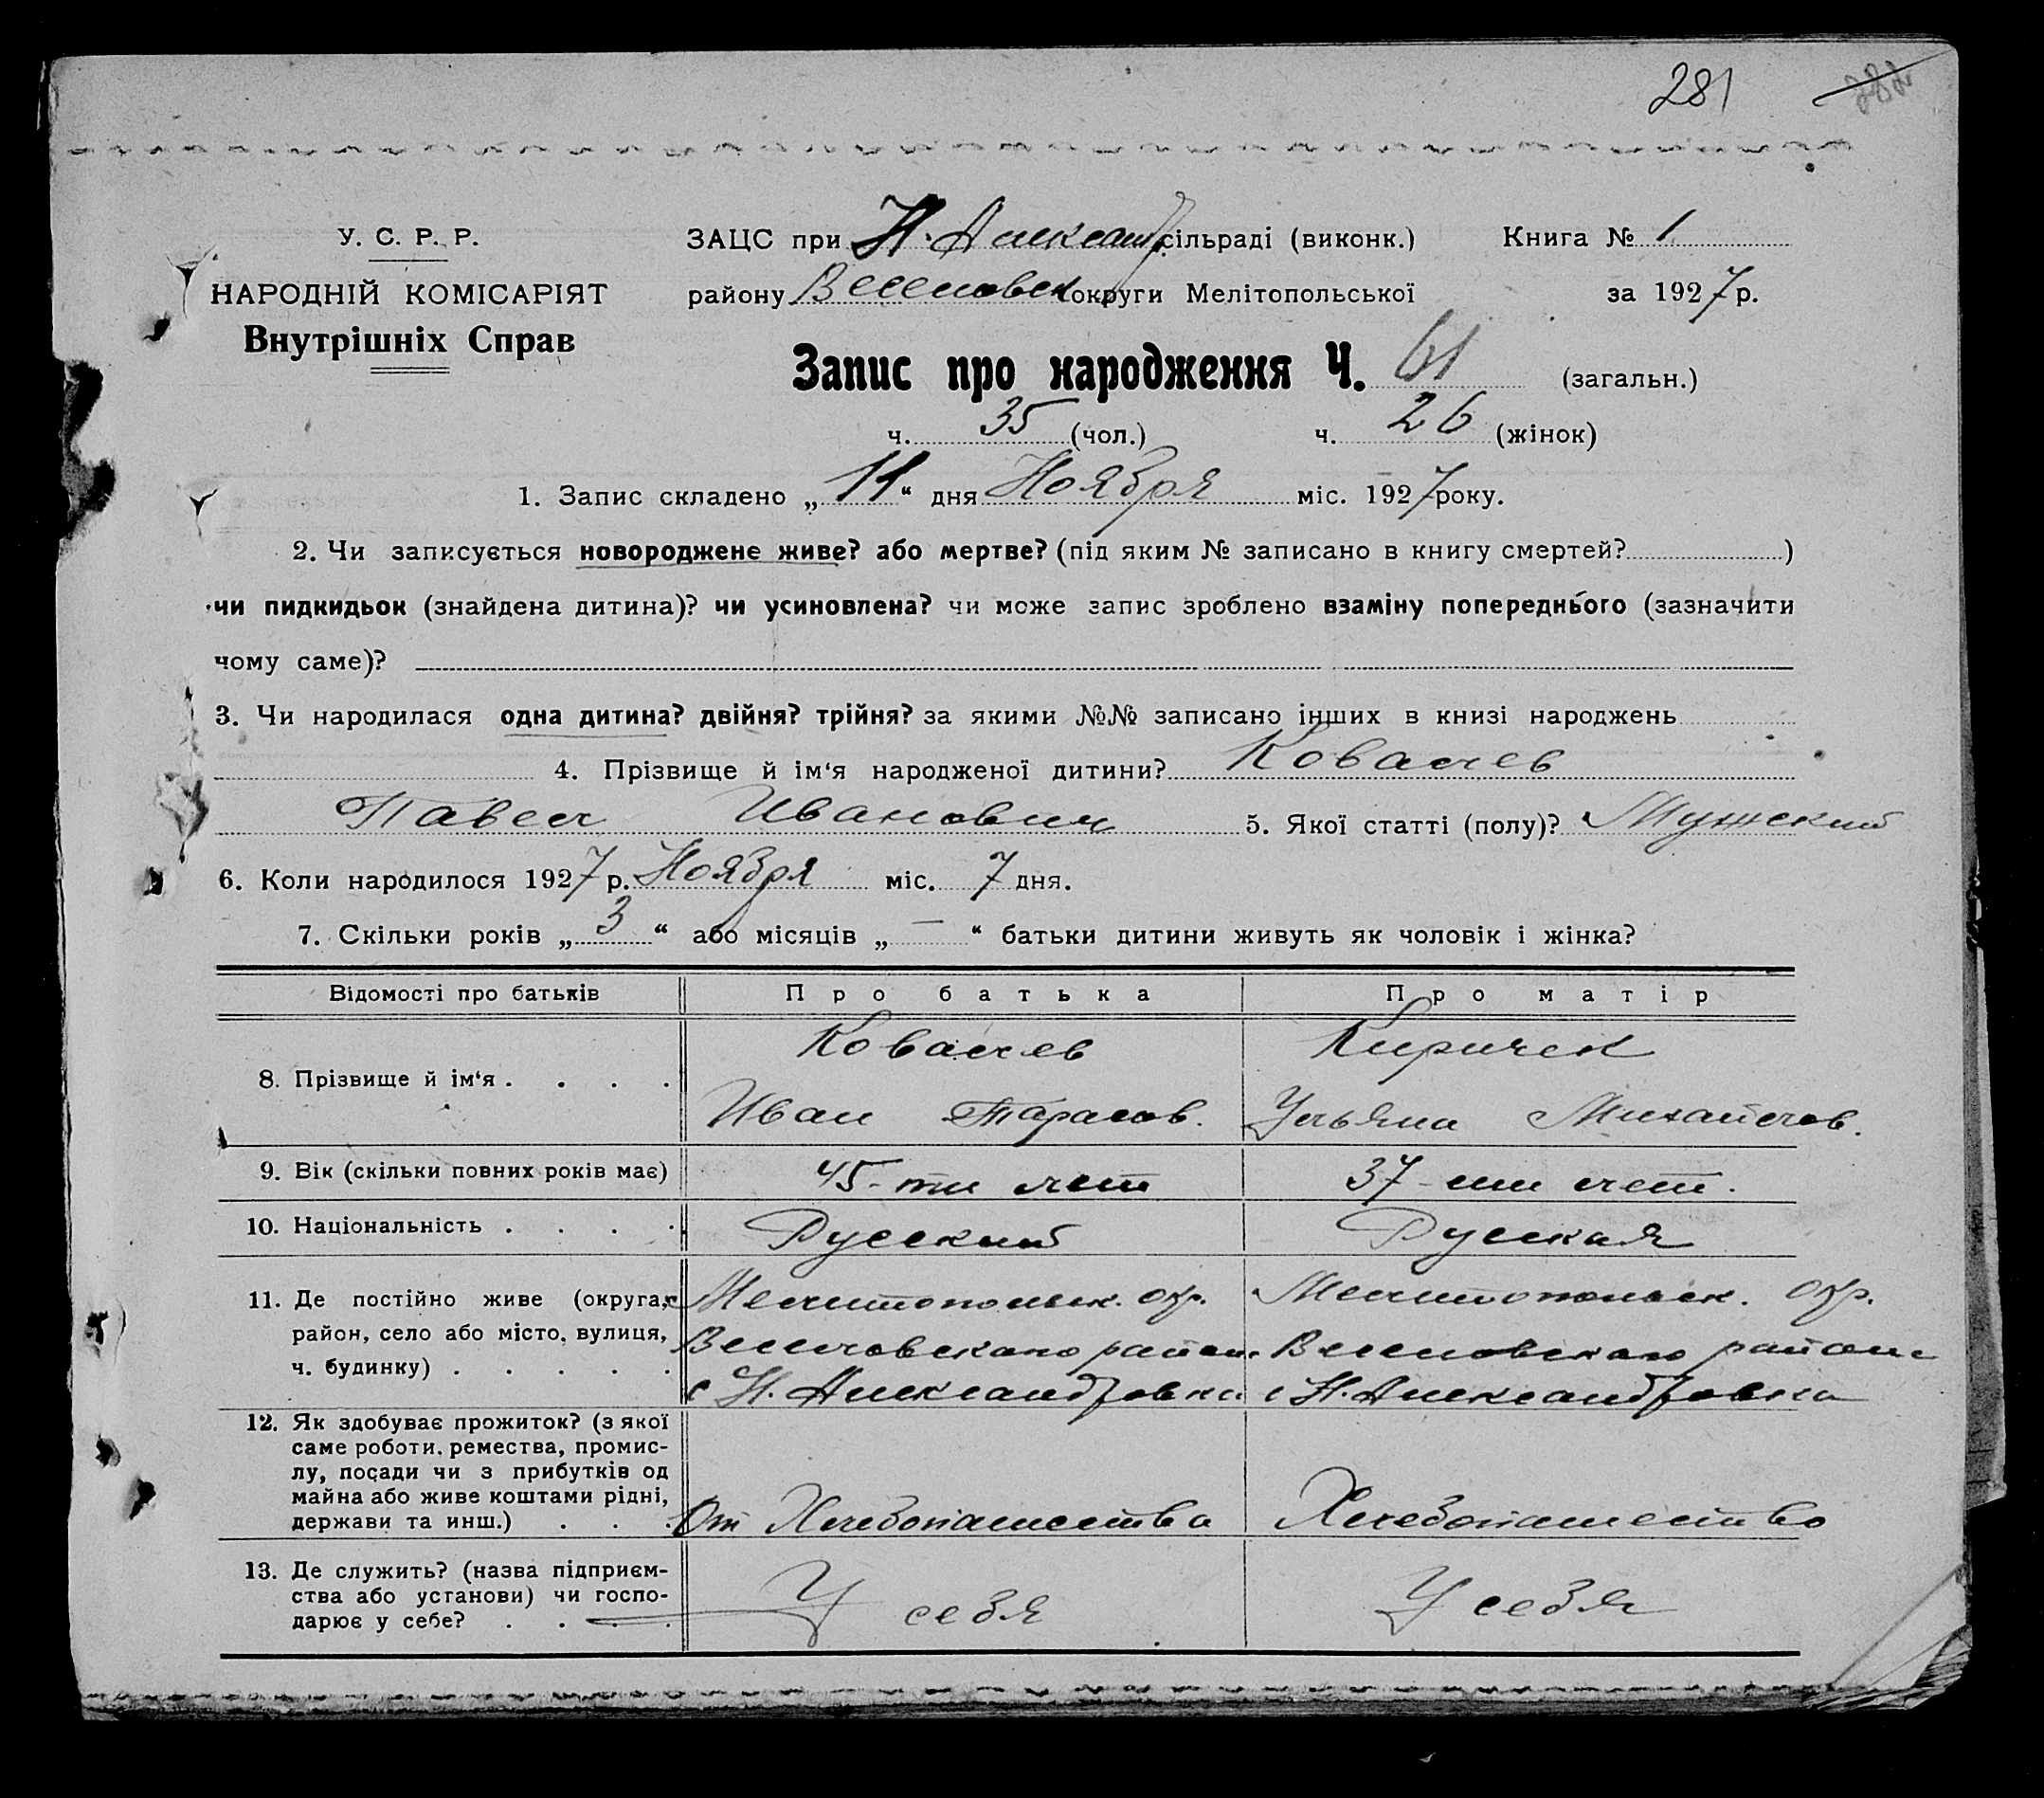 281
У. С. Р. Р.
НАРОДНІЙ КОМІСАРІЯТ
Внутрішніх Справ
ЗАЦС при Н. Александр. сільраді (виконк.) Книга № 1
району Веселовск округи Мелітопольської за 1927 р.
Запис про народження Ч. 61 (загальн.)
ч. 35 (чол.) ч. 26 (жінок)
1. Запис складено „11“ дня Ноября міс. 1927 року.
2. Чи записується новороджене живе? або мертве? (під яким № записано в книгу смертей? )
чи пидкидьок (знайдена дитина)? чи усиновлена? чи може запис зроблено взаміну попереднього (зазначити
чому саме)?
3. Чи народилася одна дитина? двійня? трійня? за якими №№ записано інших в книзі народжень
4. Прізвище й ім‘я народженої дитини? Ковалев
Павел Иванович 5. Якої статті (полу)? Мужский
6. Коли народилося 1927 р. Ноября міс. 7 дня.
7. Скільки років „3“ або місяців „—“ батьки дитини живуть як чоловік і жінка?
Відомості про батьків Про батька Про матір
8. Прізвище й ім‘я . . . . Ковалев Киричек
Иван Тарасов. Ульяна Михайлов.
9. Вік (скільки повних років має) 45-ти лет 37-ми лет.
10. Національність . . . . Русский Русская
11. Де постійно живе (округа, Мелитопольск. окр. Мелитопольск. окр.
район, село або місто, вулиця, Веселовского район Веселовского района
ч. будинку) . . . . . с Н. Александровка с Н. Александровка
12. Як здобуває прожиток? (з якої
саме роботи, ремества, промис-
лу, посади чи з прибутків од
майна або живе коштами рідні,
держави та инш.) . . . От Хлебопашества Хлебопашество
13. Де служить? (назва підприєм-
ства або установи) чи госпо-
дарює у себе? . . . . У себя У себя